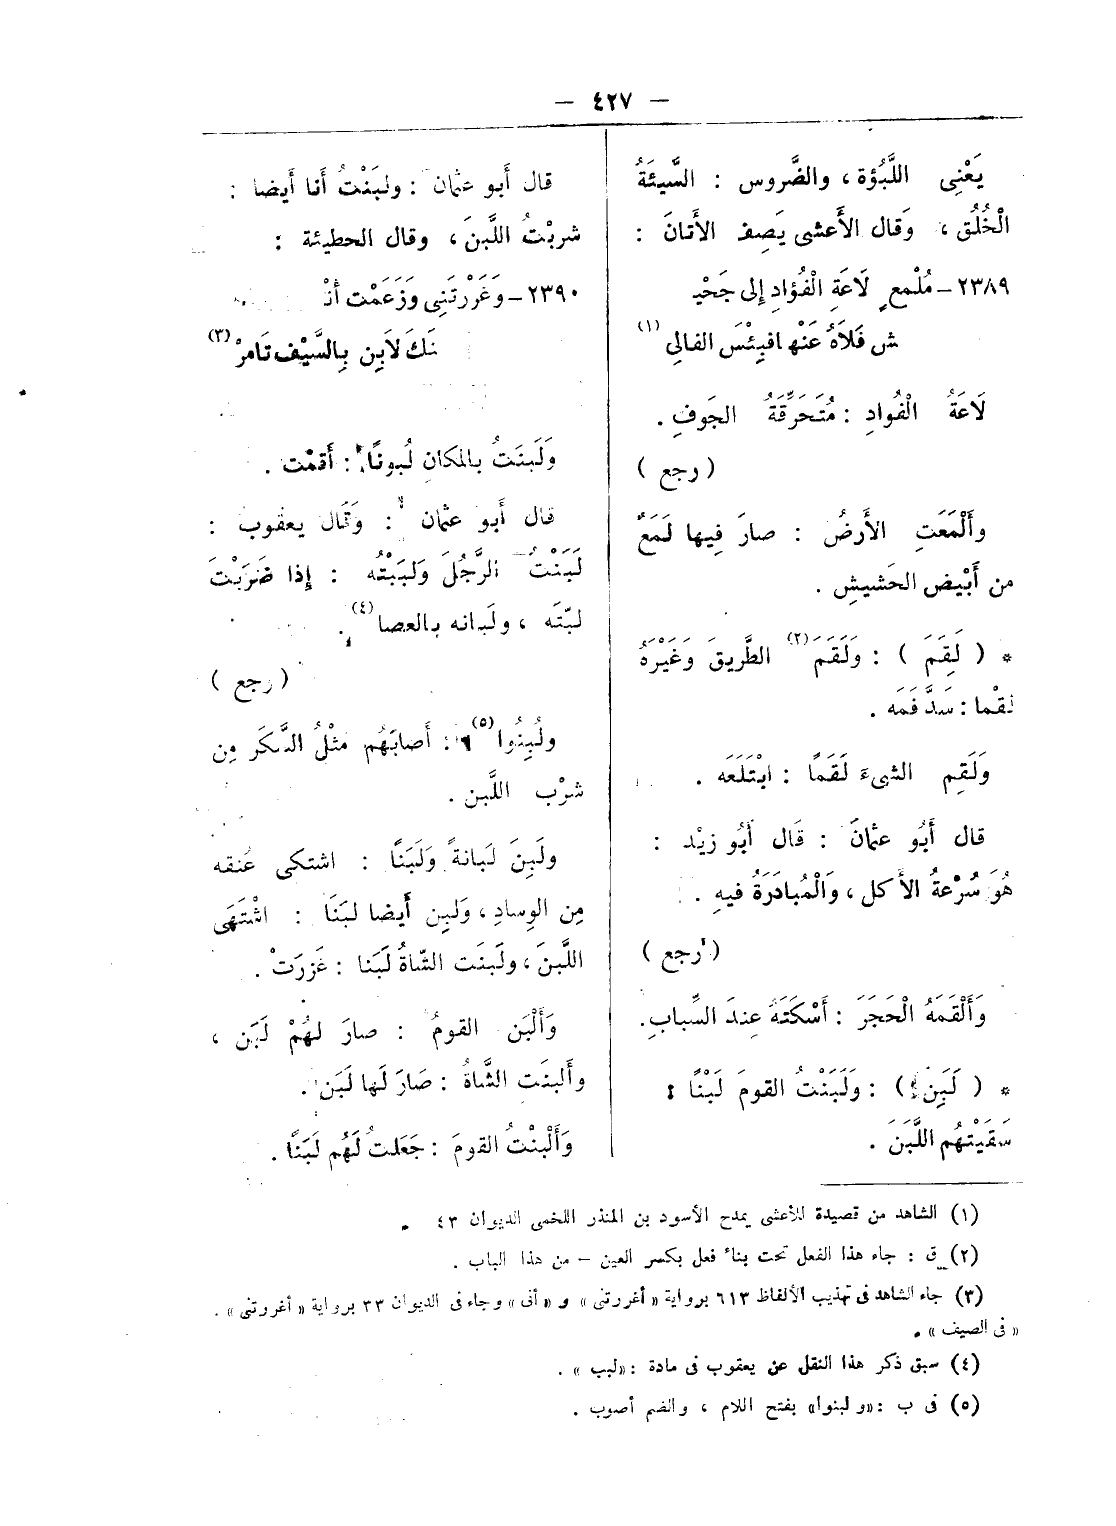 — ٤٢٧ —
يَعْنِى اللَّبُؤة ، والضَّروس : السَّيئَةُ
الْخُلُق ، وَقال الأَعشى يَصِف الأَتانَ :
٢٣٨٩ – مُلْمِعٍ لَاعَةِ الْفُؤادِ إِلى جَحْـ
ش فَلَاهُ عَنْها فبِئْسَ الفالِي (١)
لَاعَةُ الْفُوادِ : مُتَحَرِّقَةُ الجَوفِ .
( رجع )
وأَلْمَعَتِ الأَرضُ : صارَ فِيها لَمَعٌ
من أَبْيض الحَشيشِ .
* ( لَقِمَ ) : وَلَقَمَ (٢) الطَّرِيقَ وَغَيْرَهُ
لَقْما : سَدَّ فَمَه .
وَلَقِم الشىءَ لَقَمًا : ابْتَلَعَه .
قال أَبُو عثمانَ : قَال أَبُو زيْد :
هُوَ سُرْعةُ الأكل ، وَالْمُبادَرَةُ فيهِ .
( رجع )
وَأَلْقَمَهُ الْحَجَرَ : أَسْكَتَهُ عِندَ السِّبابِ .
* ( لَبَن ) : وَلَبَنْتُ القومَ لَبْنًا :
سَقَيْتهُم اللَّبَنَ .
قال أَبو عثمان : ولبَنْتُ أَنا أَيضا :
شربْتُ اللَّبنَ ، وقال الحطيئة :
٢٣٩٠ – وَغَرَرْتَنِى وَزَعَمْت أنْـ
نَكَ لاَبِن بِالصَّيْف تَامرْ (٣)
وَلَبنَتُ بالمكان لُبونًا : أَقمْت .
قال أَبو عثمان : وَقَال يعقوب :
لَبَنْتُ الرَّجُلَ وَلَبَبْتُه : إِذا ضَرَبْتَ
لبّتَه ، ولَبانه بالعصا (٤) .
( رجع )
ولُبِنُوا (٥) : أَصابَهُم مثْلُ السَّكَر مِن
شرْب اللَّبن .
ولَبِنَ لَبانةً وَلَبَنًا : اشتكى عُنقه
مِن الوِسادِ ، وَلبِن أَيضا لبَنَا : اشْتَهَى
اللَّبنَ ، ولَبنَت الشّاةُ لَبَنا : غَزرَتْ .
وَأَلْبَن القومُ : صارَ لهُمْ لَبَن ،
وأَلبنَت الشَّاةُ : صَارَ لَها لَبَن .
وَأَلْبنْتُ القومَ : جَعَلتُ لَهُم لَبَنًا .
(١) الشاهد من قصيدة للأعشى يمدح الأسود بن المنذر اللخمى الديوان ٤٣ .
(٢) ق : جاء هذا الفعل تحت بناء فعل بكسر العين – من هذا الباب .
(٣) جاء الشاهد فى تهذيب الألفاظ ٦١٣ برواية « أغررتنى » و « أنى » وجاء فى الديوان ٣٣ برواية « أغررتنى » .
« فى الصيف » .
(٤) سبق ذكر هذا النقل عن يعقوب فى مادة : «لبب » .
(٥) فى ب : «ولبنوا» بفتح اللام ، والضم أصوب .